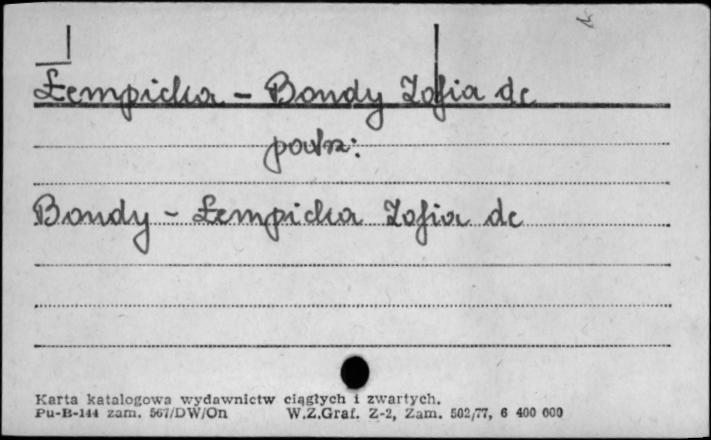 Łempicka - Bondy Zofia de
patrz:
Bondy - Łempicka Zofia de
Karta katalogowa wydawnictw ciągłych i zwartych.
Pu-B-144 zam. 567/DW/On W.Z.Graf. Z-2, Zam. 502/77, 6 400 000